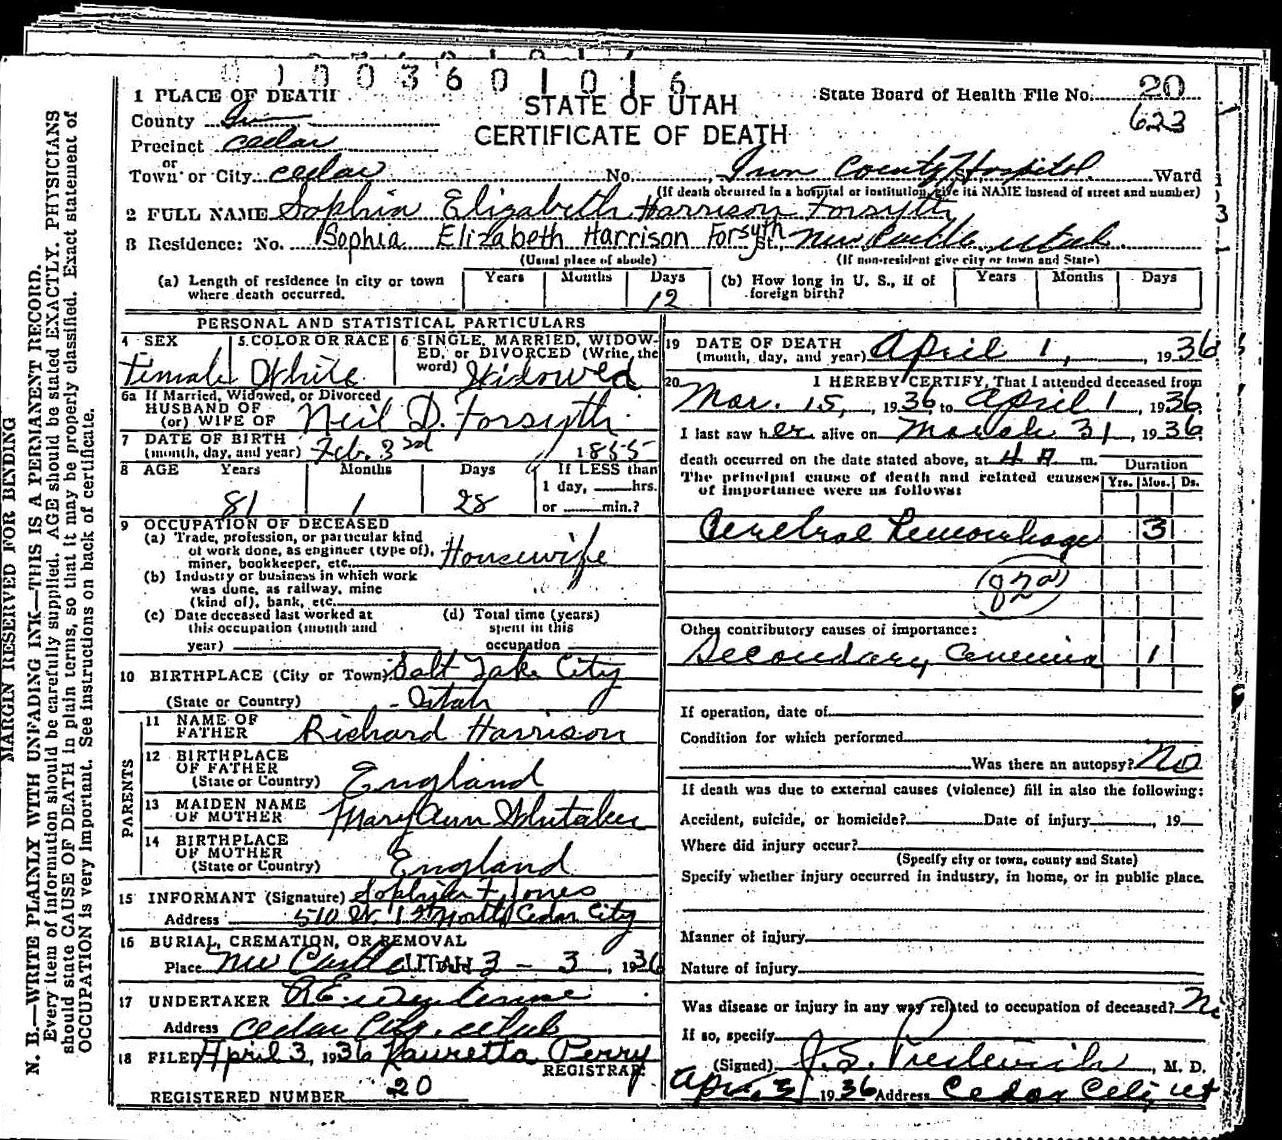 0 0 0 3 6 0 1 0 1 6
1 PLACE OF DEATH
STATE OF UTAH
CERTIFICATE OF DEATH
State Board of Health File No. 20
623
County
Precinct Cedar
or
Town or City Cedar No. Iron County Hospital St. Ward
(If death occurred in a hospital or institution, give its NAME instead of street and number)
2 FULL NAME Sophia Elizabeth Harrison Forsyth
3 Residence: No. Sophia Elizabeth Harrison Forsyth St. New Castle, Utah
(Usual place of abode) (If non-resident give city or town and State)
(a) Length of residence in city or town where death occurred. Years Months Days 12 (b) How long in U. S., if of foreign birth? Years Months Days
PERSONAL AND STATISTICAL PARTICULARS
4 SEX Female
5 COLOR OR RACE White
6 SINGLE, MARRIED, WIDOWED, or DIVORCED (Write the word) Widowed
6a If Married, Widowed, or Divorced
HUSBAND OF
(or) WIFE OF Neil D. Forsyth
7 DATE OF BIRTH
(month, day, and year) Feb. 3rd 1855
8 AGE Years 81 Months 1 Days 28 If LESS than
1 day, hrs.
or min.?
9 OCCUPATION OF DECEASED
(a) Trade, profession, or particular kind
of work done, as engineer (type of),
miner, bookkeeper, etc. Housewife
(b) Industry or business in which work
was done, as railway, mine
(kind of), bank, etc.
(c) Date deceased last worked at
this occupation (month and
year)
(d) Total time (years)
spent in this
occupation
10 BIRTHPLACE (City or Town) Salt Lake City
(State or Country) Utah
PARENTS
11 NAME OF
FATHER Richard Harrison
12 BIRTHPLACE
OF FATHER
(State or Country) England
13 MAIDEN NAME
OF MOTHER Mary Ann Whitaker
14 BIRTHPLACE
OF MOTHER
(State or Country) England
15 INFORMANT (Signature) Sophia F Jones
Address 510 W. 1st North Cedar City
16 BURIAL, CREMATION, OR REMOVAL
Place New Castle UTAH 3 - 3, 1936
17 UNDERTAKER
Address Cedar City, Utah
18 FILED April 3, 1936 Lauretta Perry
REGISTRAR
REGISTERED NUMBER 20
19 DATE OF DEATH
(month, day, and year) April 1, 1936
20 I HEREBY CERTIFY, That I attended deceased from
Mar. 15, 1936, to April 1, 1936.
I last saw her alive on March 31, 1936
death occurred on the date stated above, at 4 A m.
The principal cause of death and related causes
of importance were as follows:
Duration
Yrs. Mos. Ds.
Cerebral Hemorrhage 3
(82a)
Other contributory causes of importance:
Secondary Anemia 1
If operation, date of
Condition for which performed
Was there an autopsy? No
If death was due to external causes (violence) fill in also the following:
Accident, suicide, or homicide? Date of injury , 19
Where did injury occur?
(Specify city or town, county and State)
Specify whether injury occurred in industry, in home, or in public place.
Manner of injury
Nature of injury
Was disease or injury in any way related to occupation of deceased? No
If so, specify
(Signed) J.S. Prestwich, M. D.
Apr. 3, 1936 Address Cedar City, Ut
MARGIN RESERVED FOR BENDING
N. B.—WRITE PLAINLY WITH UNFADING INK—THIS IS A PERMANENT RECORD.
Every item of information should be carefully supplied. AGE should be stated EXACTLY. PHYSICIANS
should state CAUSE OF DEATH in plain terms, so that it may be properly classified. Exact statement of
OCCUPATION is very important. See instructions on back of certificate.